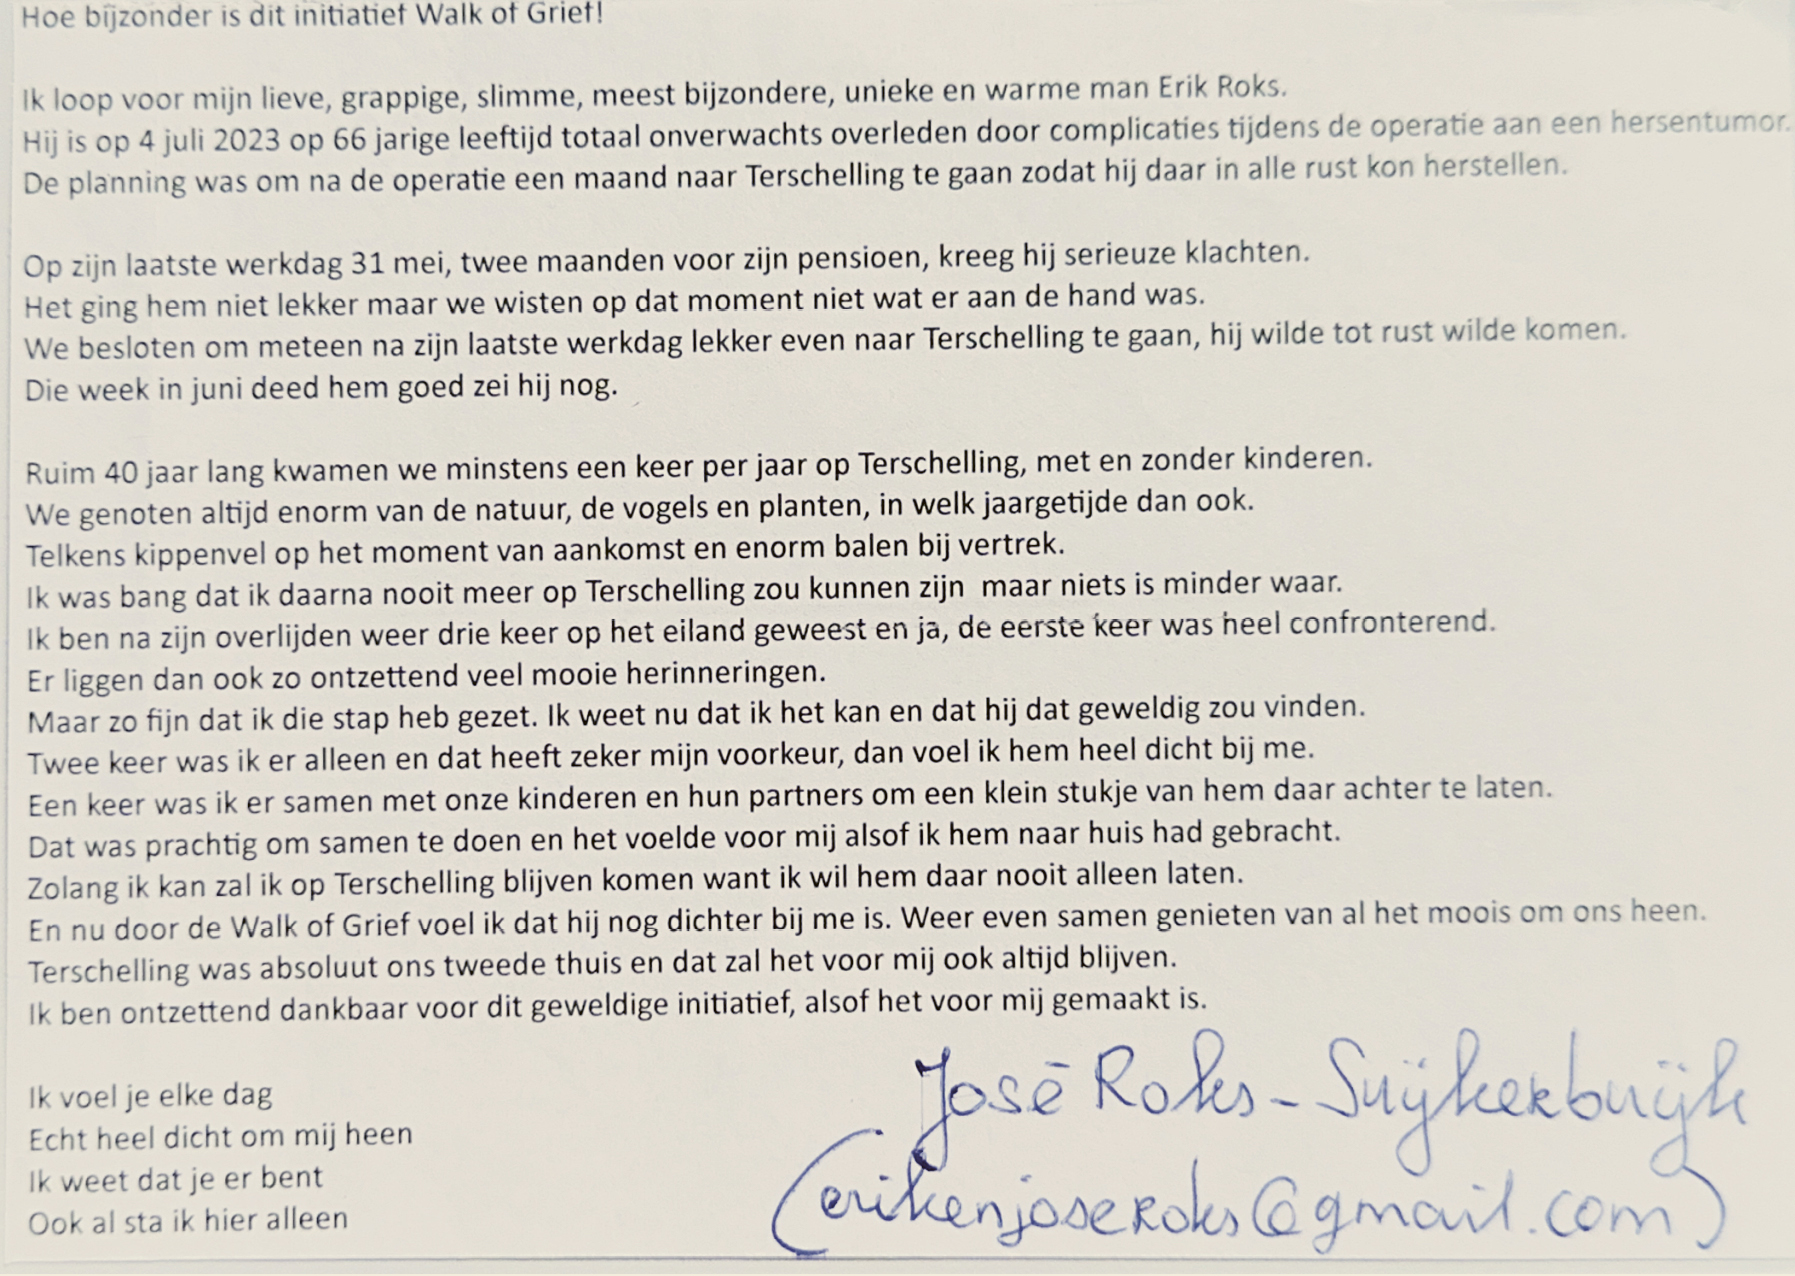 Hoe bijzonder is dit initiatief Walk of Grief!
Ik loop voor mijn lieve, grappige, slimme, meest bijzondere, unieke en warme man Erik Roks.
Hij is op 4 juli 2023 op 66 jarige leeftijd totaal onverwachts overleden door complicaties tijdens de operatie aan een hersentumor.
De planning was om na de operatie een maand naar Terschelling te gaan zodat hij daar in alle rust kon herstellen.
Op zijn laatste werkdag 31 mei, twee maanden voor zijn pensioen, kreeg hij serieuze klachten.
Het ging hem niet lekker maar we wisten op dat moment niet wat er aan de hand was.
We besloten om meteen na zijn laatste werkdag lekker even naar Terschelling te gaan, hij wilde tot rust wilde komen.
Die week in juni deed hem goed zei hij nog.
Ruim 40 jaar lang kwamen we minstens een keer per jaar op Terschelling, met en zonder kinderen.
We genoten altijd enorm van de natuur, de vogels en planten, in welk jaargetijde dan ook.
Telkens kippenvel op het moment van aankomst en enorm balen bij vertrek.
Ik was bang dat ik daarna nooit meer op Terschelling zou kunnen zijn  maar niets is minder waar.
Ik ben na zijn overlijden weer drie keer op het eiland geweest en ja, de eerste keer was heel confronterend.
Er liggen dan ook zo ontzettend veel mooie herinneringen.
Maar zo fijn dat ik die stap heb gezet. Ik weet nu dat ik het kan en dat hij dat geweldig zou vinden.
Twee keer was ik er alleen en dat heeft zeker mijn voorkeur, dan voel ik hem heel dicht bij me.
Een keer was ik er samen met onze kinderen en hun partners om een klein stukje van hem daar achter te laten.
Dat was prachtig om samen te doen en het voelde voor mij alsof ik hem naar huis had gebracht.
Zolang ik kan zal ik op Terschelling blijven komen want ik wil hem daar nooit alleen laten.
En nu door de Walk of Grief voel ik dat hij nog dichter bij me is. Weer even samen genieten van al het moois om ons heen.
Terschelling was absoluut ons tweede thuis en dat zal het voor mij ook altijd blijven.
Ik ben ontzettend dankbaar voor dit geweldige initiatief, alsof het voor mij gemaakt is.
Ik voel je elke dag
Echt heel dicht om mij heen
Ik weet dat je er bent
Ook al sta ik hier alleen
José Roks - Suijkerbuijk
(erikenjoseroks@gmail.com)